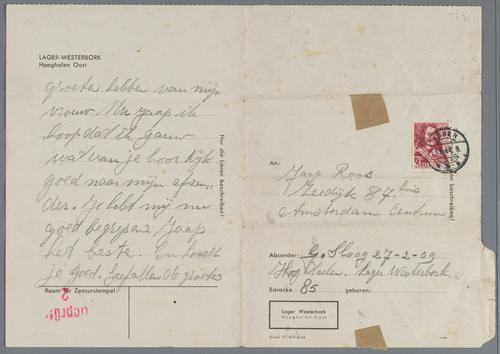 LAGER-WESTERBORK
Hooghalen Oost
groeten hebben van mijn
vrouw. Nu Jaap ik
hoop dat ik gauw
wat van je hoor Kijk
goed naar mijn afzen,
der. Je hebt mij nu
goed begrepen Jaap
het beste. En houdt
je goed.
de groeten
Raum für Zensurstempel:
Geprüft
2
Nur die Linien beschreiben!
An:
Jaap Roos
Zeedijk 87 huis
Amsterdam Centrum
Linien beschreiben!
Absender:
27-2-09
Lager Westerbork
Baracke 85 geboren:
Lager Westerbork
Hooghalen Oost